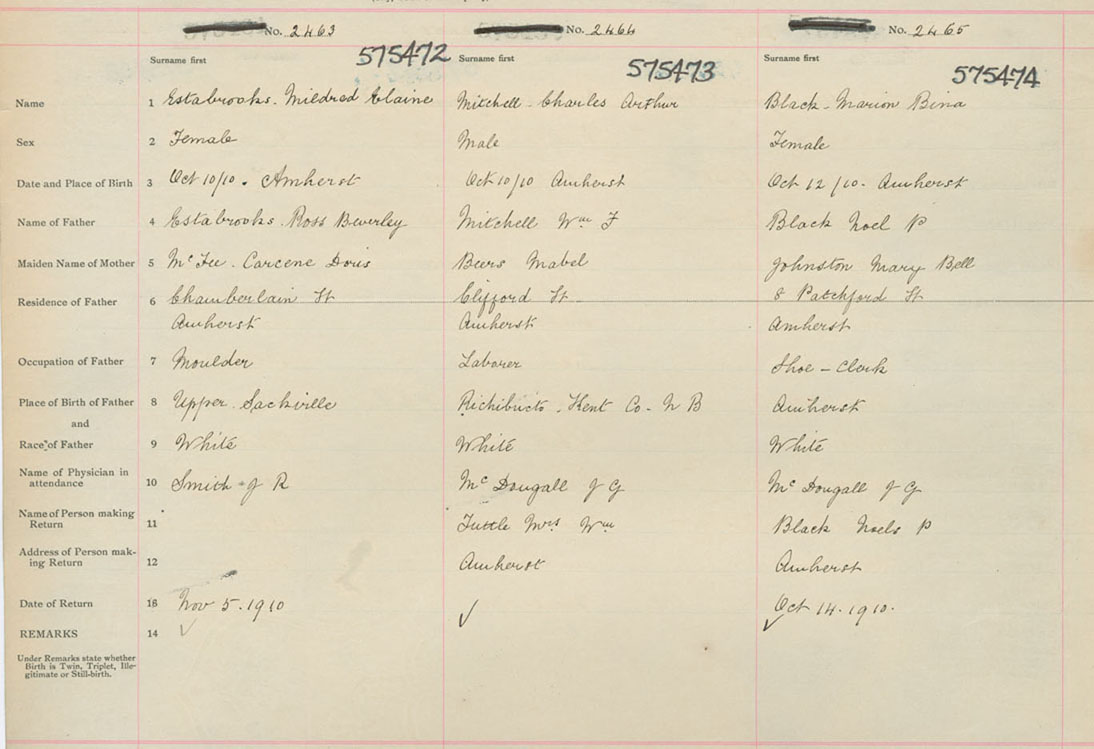 No. 2463 No. 2464 No. 2465
Surname first 575472 Surname first 575473 Surname first 575474
Name 1 Estabrooks. Mildred Elaine Mitchell - Charles Arthur Black - Marion Bina
Sex 2 Female Male Female
Date and Place of Birth 3 Oct 10/10. Amherst Oct 10/10 Amherst Oct 12/10. Amherst
Name of Father 4 Estabrooks. Ross Beverley Mitchell Wm F Black Noel P
Maiden Name of Mother 5 McFee. Carcene Doris Beers Mabel Johnston Mary Bell
Residence of Father 6 Chamberlain St Clifford St 8 Patchford St
Amherst Amherst Amherst
Occupation of Father 7 Moulder Laborer Shoe - Clerk
Place of Birth of Father 8 Upper Sackville Richibucto. Kent Co - N B Amherst
and
Race of Father 9 White White White
Name of Physician in
attendance 10 Smith J R McDougall J G McDougall J G
Name of Person making
Return 11 Tuttle Mrs Wm Black Noels P
Address of Person mak-
ing Return 12 Amherst Amherst
Date of Return 13 Nov 5. 1910 Oct 14. 1910.
REMARKS 14
Under Remarks state whether
Birth is Twin, Triplet, Ille-
gitimate or Still-birth.